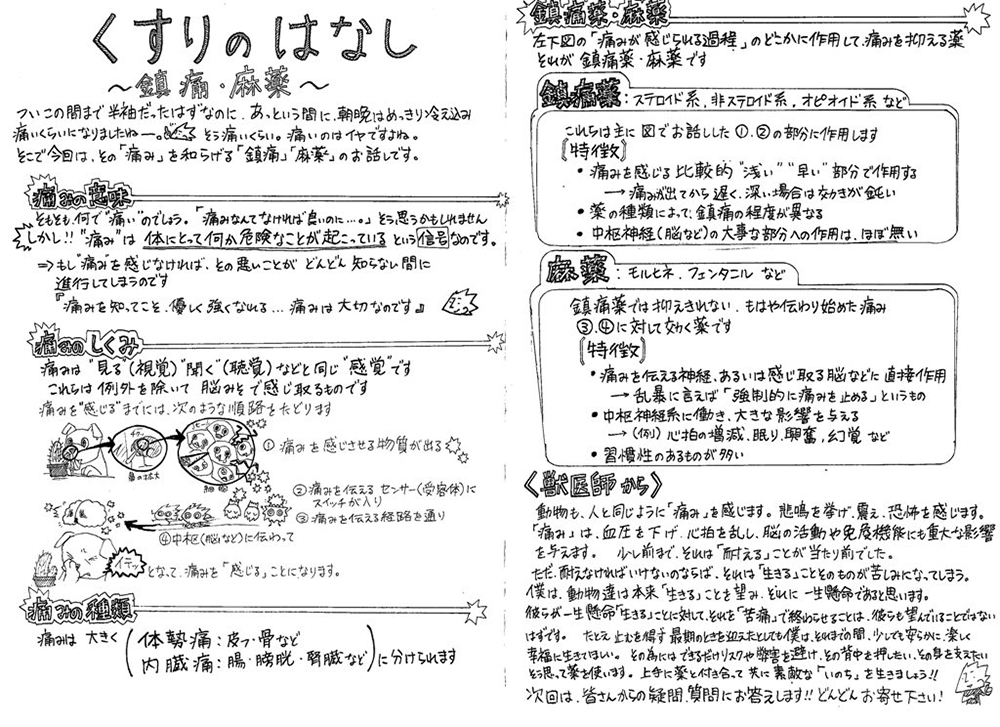 くすりの はなし
～鎮痛・麻薬～
ついこの間まで半袖だったはずなのに、あっという間に、朝晩はめっきり冷え込み
痛いくらいになりましたねー。そう痛いくらい。痛いのはイヤですよね。
そこで今回は、その「痛み」を和らげる「鎮痛」「麻薬」のお話しです。
痛みの意味
そもそも、何で"痛い"のでしょう。「痛みなんてなければ良いのに…。」そう思うかもしれません
しかし!! "痛み"は 体にとって何か危険なことが起こっている という信号なのです。
⇒もし"痛み"を感じなければ、その悪いことが どんどん知らない間に
進行してしまうのです
『痛みを知ってこそ、優しく強くなれる…痛みは大切なのです』
痛みのしくみ
痛みは"見る"(視覚)"聞く"(聴覚)などと同じ"感覚"です
これらは例外を除いて 脳みそで感じ取るものです
痛みを"感じる"までには、次のような順路をたどります
①痛みを感じさせる物質が出る
鼻の拡大
細胞
②痛みを伝える センサー(受容体)に
スイッチが入り
③痛みを伝える経路を通り
④中枢(脳など)に伝わって
イテッ となって、痛みを「感じる」ことになります。
痛みの種類
痛みは 大きく
体勢痛：皮フ・骨など
内臓痛：腸・膀胱・腎臓など
に分けられます
鎮痛薬・麻薬
左下図の「痛みが感じられる過程」のどこかに作用して、痛みを抑える薬
それが 鎮痛薬・麻薬です
鎮痛薬：ステロイド系、非ステロイド系、オピオイド系 など
これらは主に 図でお話しした ①、②の部分に作用します
[特徴]
・痛みを感じる 比較的 "浅い" "早い" 部分で作用する
→ 痛みが出てから遅く、深い場合は効きが鈍い
・薬の種類によって、鎮痛の程度が異なる
・中枢神経(脳など)の大事な部分への作用は、ほぼ無い
麻薬：モルヒネ、フェンタニル など
鎮痛薬では抑えきれない、もはや伝わり始めた痛み
③、④に対して効く薬です
[特徴]
・痛みを伝える神経、あるいは感じ取る脳などに 直接作用
→ 乱暴に言えば「強制的に痛みを止める」というもの
・中枢神経系に働き、大きな影響を与える
→(例) 心拍の増減、眠り、興奮、幻覚 など
・習慣性のあるものが多い
〈獣医師から〉
動物も、人と同じように「痛み」を感じます。悲鳴を挙げ、震え、恐怖を感じます。
「痛み」は、血圧を下げ、心拍を乱し、脳の活動や免疫機能にも重大な影響
を与えます。 少し前まで、それは「耐える」ことが当たり前でした。
ただ、耐えなければいけないのならば、それは「生きる」ことそのものが苦しみになってしまう。
僕は、動物達は本来「生きる」ことを望み、それに一生懸命であると思います。
彼らが一生懸命「生きる」ことに対して、それを「苦痛」で終わらせることは、彼らも望んでいることではない
はずです。 たとえ 止むを得ず 最期のときを迎えたとしても僕は、それまでの間、少しでも安らかに、楽しく
幸福に生きてほしい。その為にはできるだけリスクや弊害を避け、その背中を押したい、その身を支えたい
そう思って薬を使います。上手に薬と付き合って 共に 素敵な「いのち」を生きましょう!!
次回は、皆さんからの疑問、質問にお答えします!! どんどんお寄せ下さい!